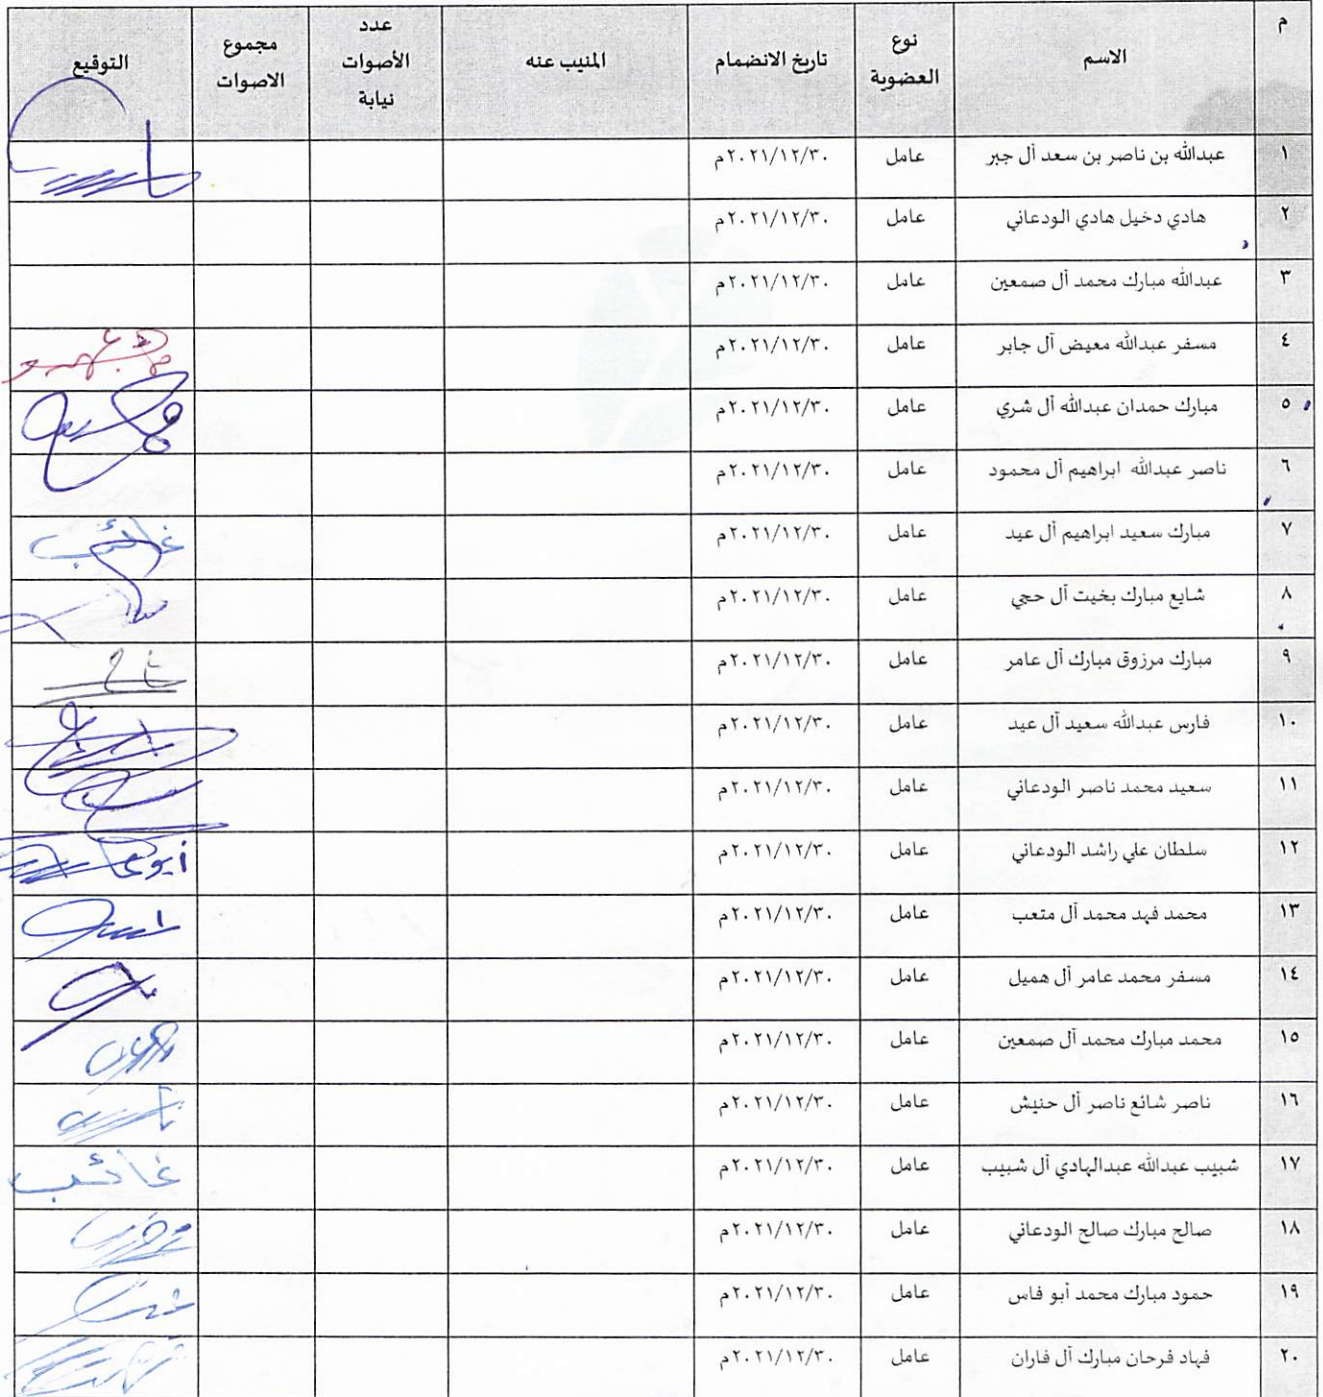 م الاسم نوع العضوية تاريخ الانضمام المنيب عنه عدد الأصوات نيابة مجموع الاصوات التوقيع
١ عبدالله بن ناصر بن سعد آل جبر عامل ٢٠٢١/١٢/٣٠م
٢ هادي دخيل هادي الودعاني عامل ٢٠٢١/١٢/٣٠م
٣ عبدالله مبارك محمد آل صمعين عامل ٢٠٢١/١٢/٣٠م
٤ مسفر عبدالله معيض آل جابر عامل ٢٠٢١/١٢/٣٠م
٥ مبارك حمدان عبدالله آل شري عامل ٢٠٢١/١٢/٣٠م
٦ ناصر عبدالله ابراهيم آل محمود عامل ٢٠٢١/١٢/٣٠م
٧ مبارك سعيد ابراهيم آل عيد عامل ٢٠٢١/١٢/٣٠م غائب
٨ شايع مبارك بخيت آل حجي عامل ٢٠٢١/١٢/٣٠م
٩ مبارك مرزوق مبارك آل عامر عامل ٢٠٢١/١٢/٣٠م
١٠ فارس عبدالله سعيد آل عيد عامل ٢٠٢١/١٢/٣٠م
١١ سعيد محمد ناصر الودعاني عامل ٢٠٢١/١٢/٣٠م
١٢ سلطان علي راشد الودعاني عامل ٢٠٢١/١٢/٣٠م
١٣ محمد فهد محمد آل متعب عامل ٢٠٢١/١٢/٣٠م
١٤ مسفر محمد عامر آل هميل عامل ٢٠٢١/١٢/٣٠م
١٥ محمد مبارك محمد آل صمعين عامل ٢٠٢١/١٢/٣٠م
١٦ ناصر شائع ناصر آل حنيش عامل ٢٠٢١/١٢/٣٠م
١٧ شبيب عبدالله عبدالهادي آل شبيب عامل ٢٠٢١/١٢/٣٠م غائب
١٨ صالح مبارك صالح الودعاني عامل ٢٠٢١/١٢/٣٠م
١٩ حمود مبارك محمد أبو فاس عامل ٢٠٢١/١٢/٣٠م
٢٠ فهاد فرحان مبارك آل فاران عامل ٢٠٢١/١٢/٣٠م